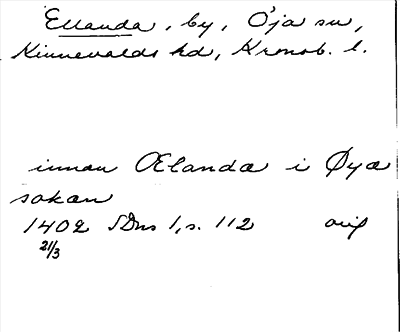 Ellanda, by, Öja sn,
Kinnevalds hd, Kronob. l.
innan Œlanda i Øya
sokan
1402 SDns 1, s. 112 orig
21/3